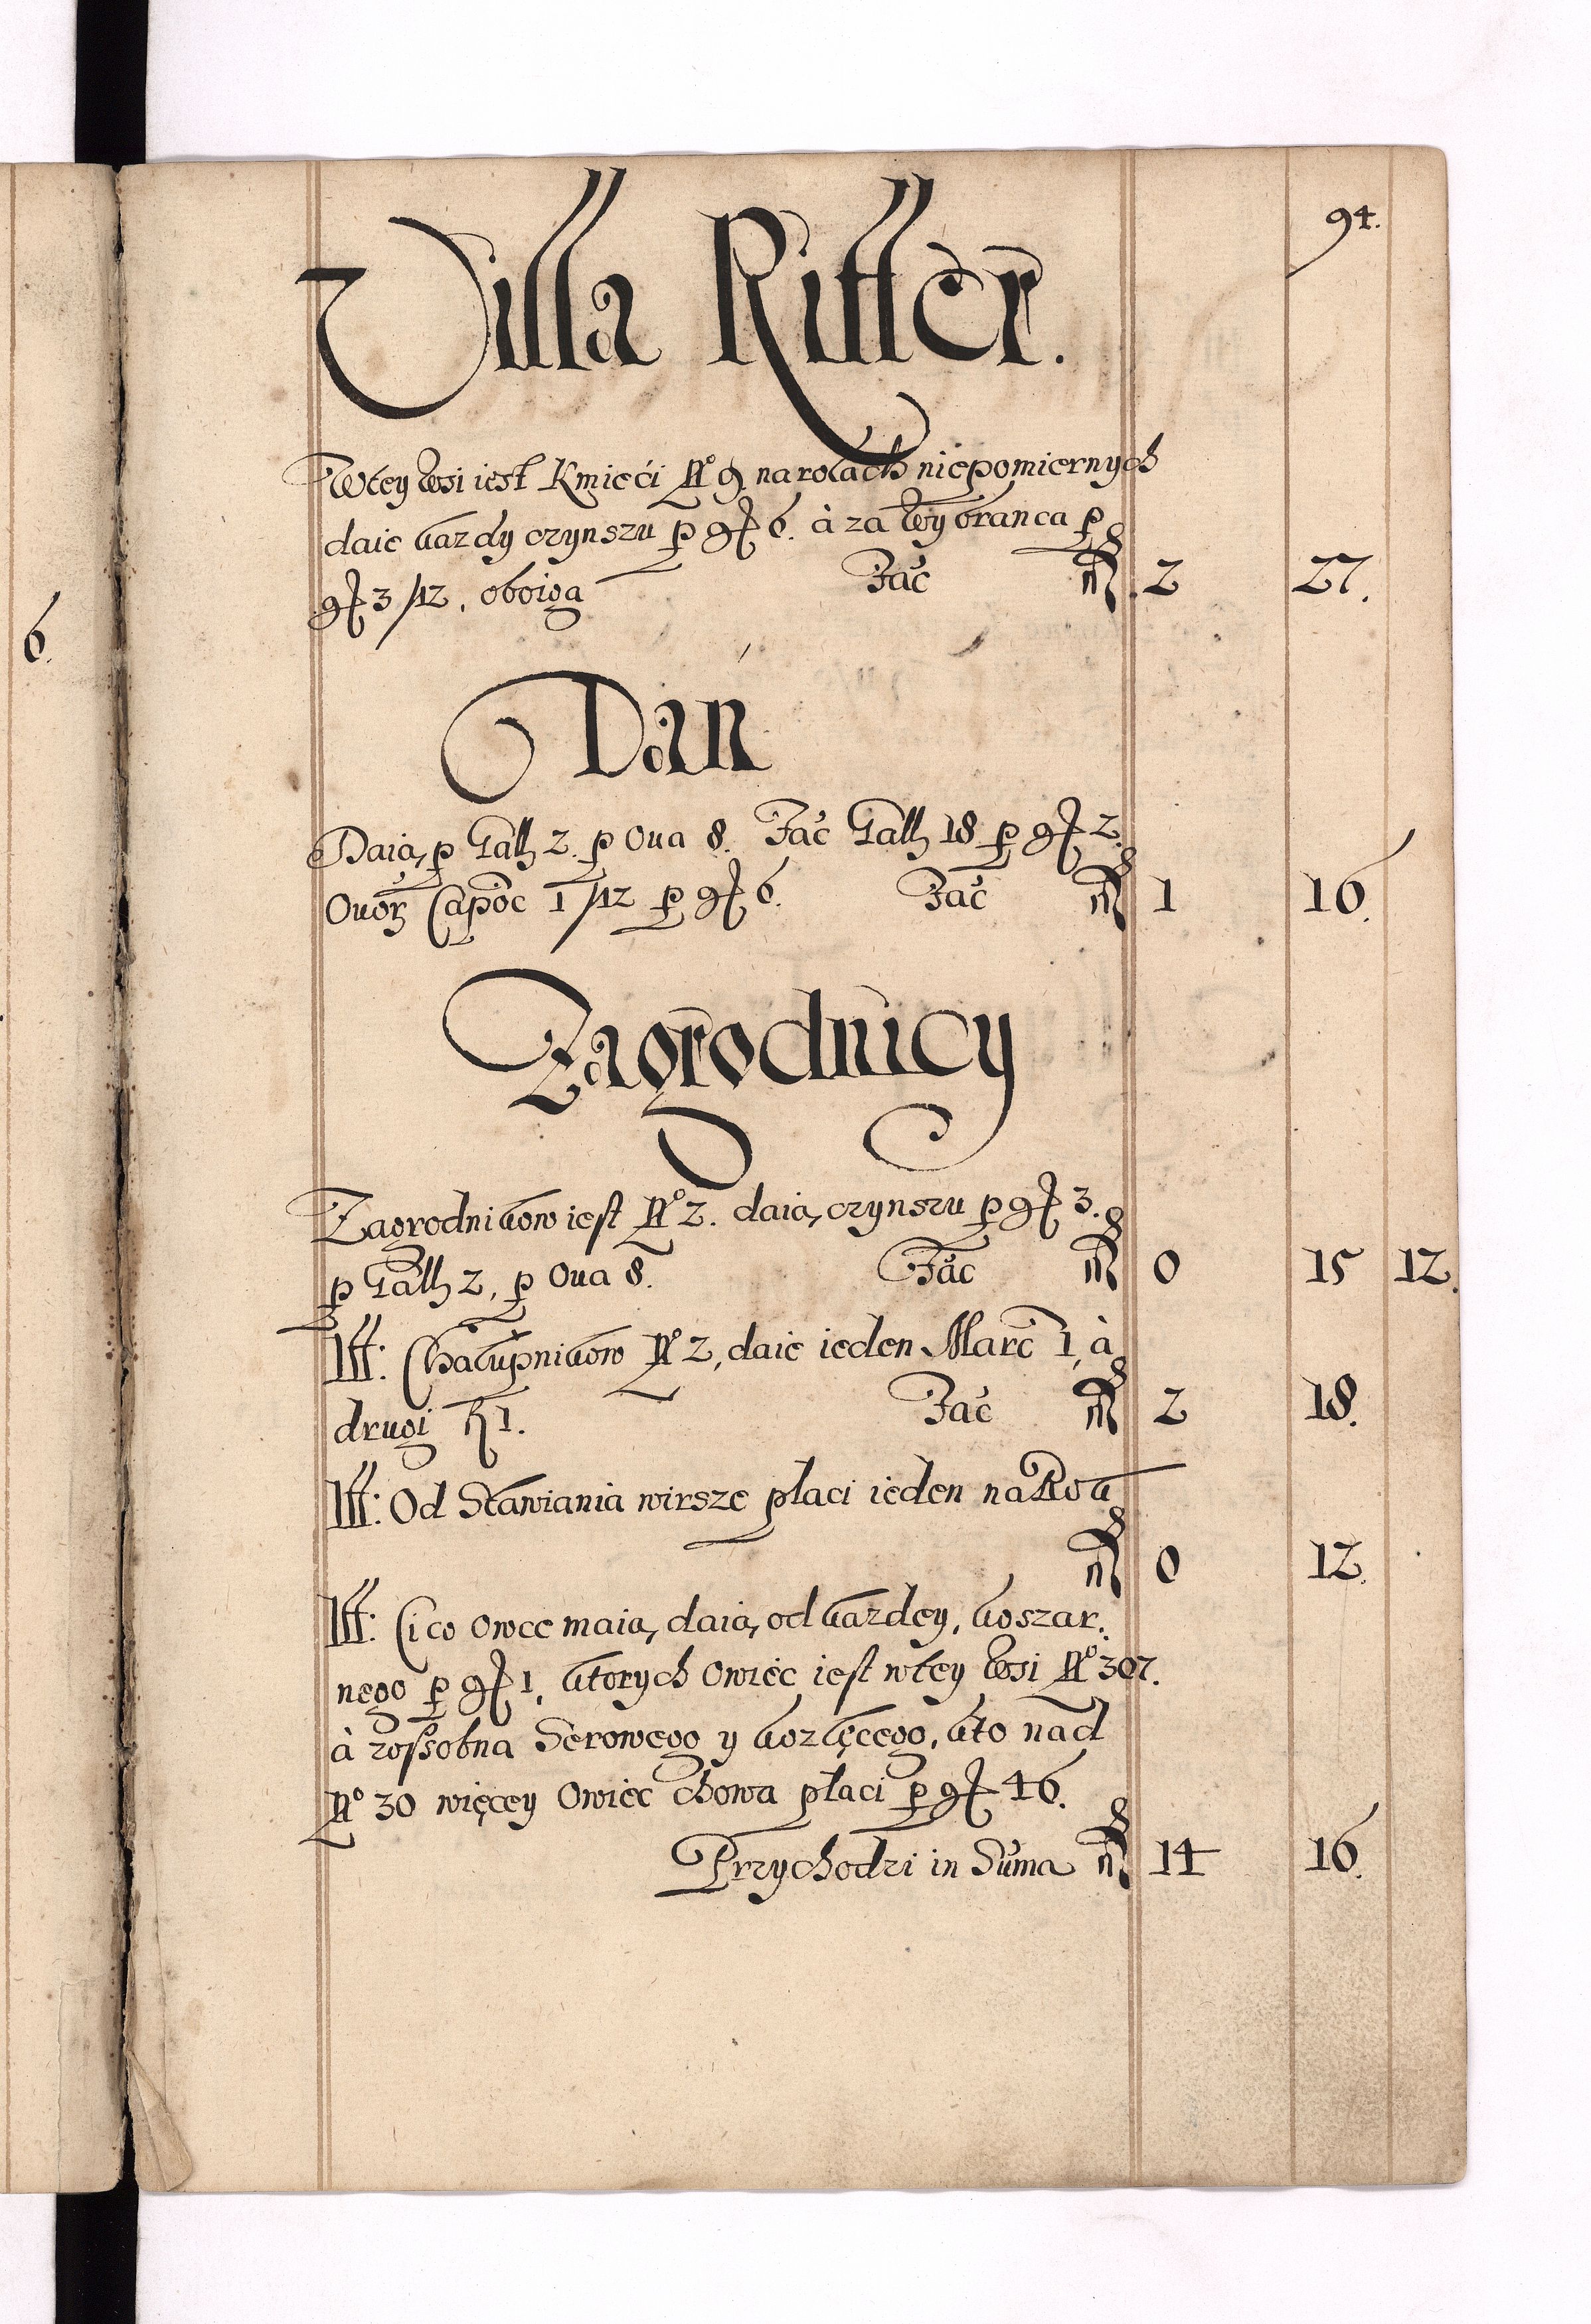 94.
6.
Villa Ritter.
Wtey wsi iest Kmieći No 9 na rolach niepomiernych
daie każdy czynszu p gr 6. à za wybranca p
gr 3/12, oboiga Fac m 2 27.
Dań
Daią p Gall 2. p Oua 8. Fac Gall 18 p gr 2.
Ouor Capoc 1/12 p gr 6. Fac m 1 16.
Zagrodnicy
Zagrodnikow iest No 2. daią czynszu p gr 3.
p Gall 2, p Oua 8. Fac m 0 15 12.
Itt: Chałupnikow No 2, daie ieden Marc 1, à
drugi R 1. Fac m 2 18.
Itt: Od Stawiania wirsze płaci ieden na Rok
m 0 12.
Itt: Ci co owce maią, daią od każdey, koszar.
nego p gr 1, ktorych Owiec iest wtey wsi No 307.
à zossobna Serowego y kozlęcego, kto nad
No 30 więcey Owiec chowa płaci p gr 46.
Przychodzi in Suma m 14 16.